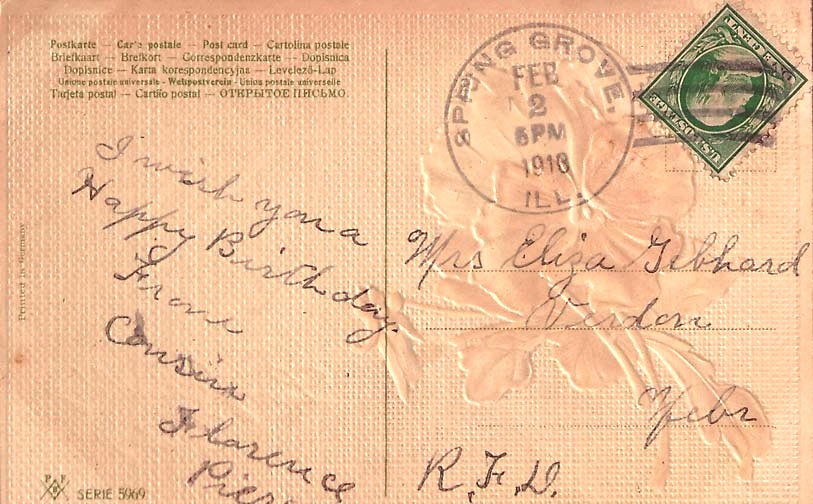 Postkarte – Carte postale – Post card – Cartolina postale
Briefkaart – Brefkort – Correspondenzkarte – Dopisnica
Dopisnice – Karta korespondencyjna – Levelező-Lap
Unione postale universale - Weltpostverein - Union postale universelle
Tarjeta postal – Cartão postal – ОТКРЫТОЕ ПИСЬМО.
SPRING GROVE, ILL.
FEB
2
5 PM
1910
I wish you a
Happy Birthday.
From
Cousin
Florence
Mrs Eliza Gebhard
Verdon
Nebr
R.F.D.
Printed in Germany
SERIE 5969